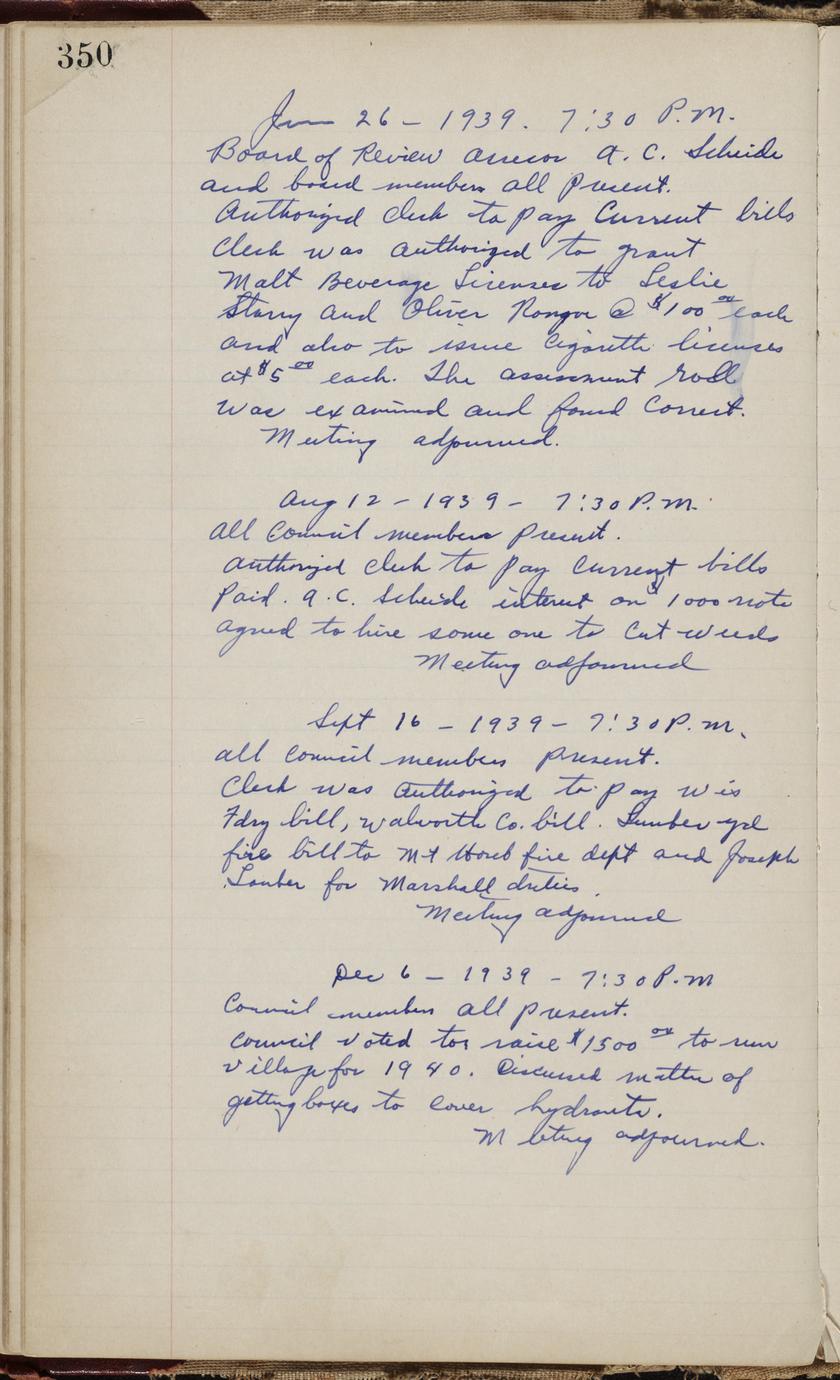 350
June 26 - 1939. 7:30 P.M.
Board of Review assessor A. C. Scheide
and board members all Present.
Authorized clerk to pay Current bills
Clerk was authorized to grant
Malt Beverage Licenses to Leslie
Starry and Oliver @ $100 00 each
and also to issue Cigarette licenses
at $5 00 each. The assessment roll
was examined and found Correct.
Meeting adjourned.
Aug 12 - 1939 - 7:30 P.M.
All Council members Present.
authorized clerk to pay Current bills
Paid. A. C. Scheide interest on $1000 note
agreed to hire some one to Cut weeds
Meeting adjourned
Sept 16 - 1939 - 7:30 P.M.
all Council members present.
Clerk was Authorized to pay Wis
Fdry bill, Walworth Co. bill. Lumber yd
fire bill to Mt Horeb fire dept and Joseph
Lauber for Marshall duties.
Meeting adjourned
Dec 6 - 1939 - 7:30 P.M
Council members all present.
Council voted to raise $1500 00 to run
Village for 1940. Discussed matter of
getting boxes to cover hydrants.
Meeting adjourned.